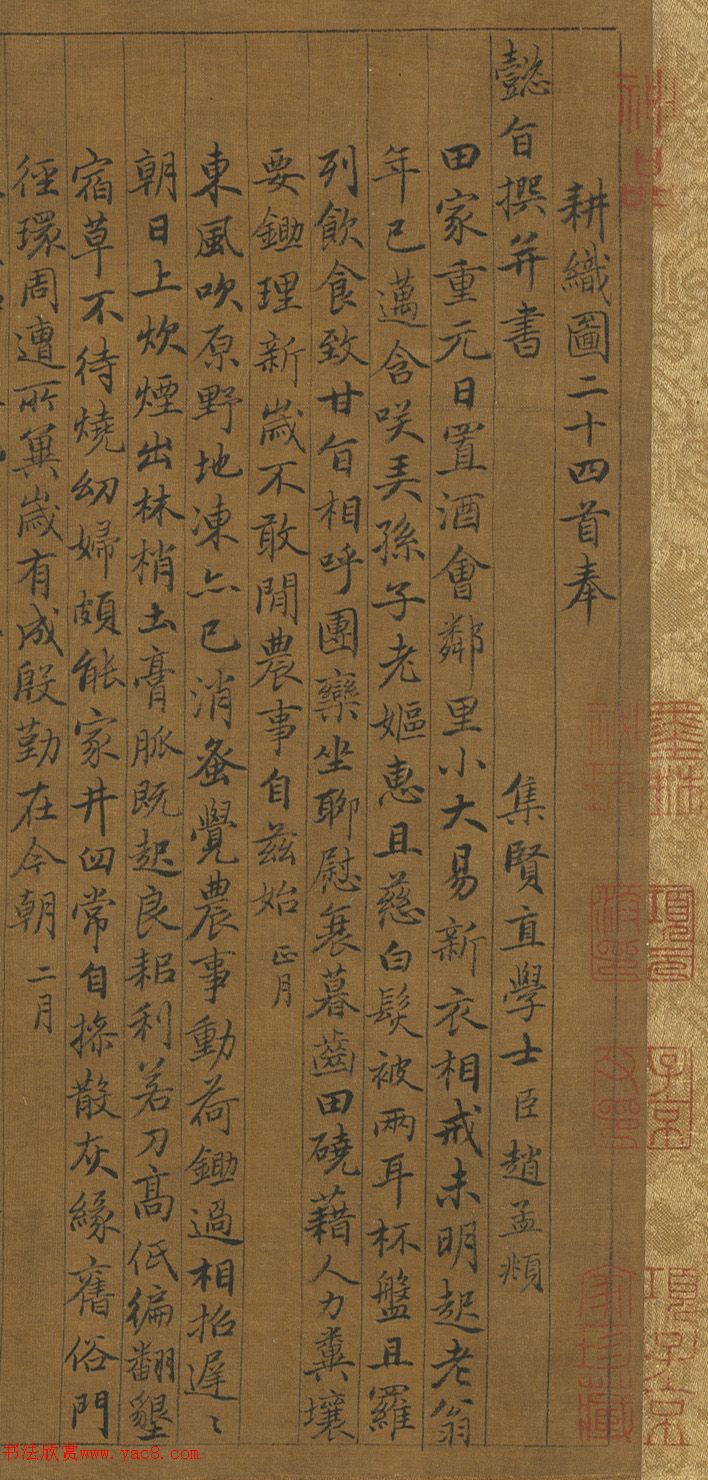 耕織圖二十四首奉
懿旨撰并書　集賢直學士臣趙孟頫
田家重元日置酒會鄰里小大易新衣相戒未明起老翁
年已邁含咲弄孫子老嫗惠且慈白髮被兩耳杯盤且羅
列飲食致甘旨相呼團欒坐聊慰衰暮齒田磽藉人力糞壤
要鋤理新歲不敢閒農事自茲始 正月
東風吹原野地凍亦已消蚤覺農事動荷鋤過相招遲〻
朝日上炊煙出林梢土膏脈既起良耜利若刀高低徧翻墾
宿草不待燒幼婦頗能家井臼常自操散灰緣舊俗門
徑環周遭所冀歲有成殷勤在今朝 二月
神品
項子京
家珍藏
书法欣赏www.yac8.com